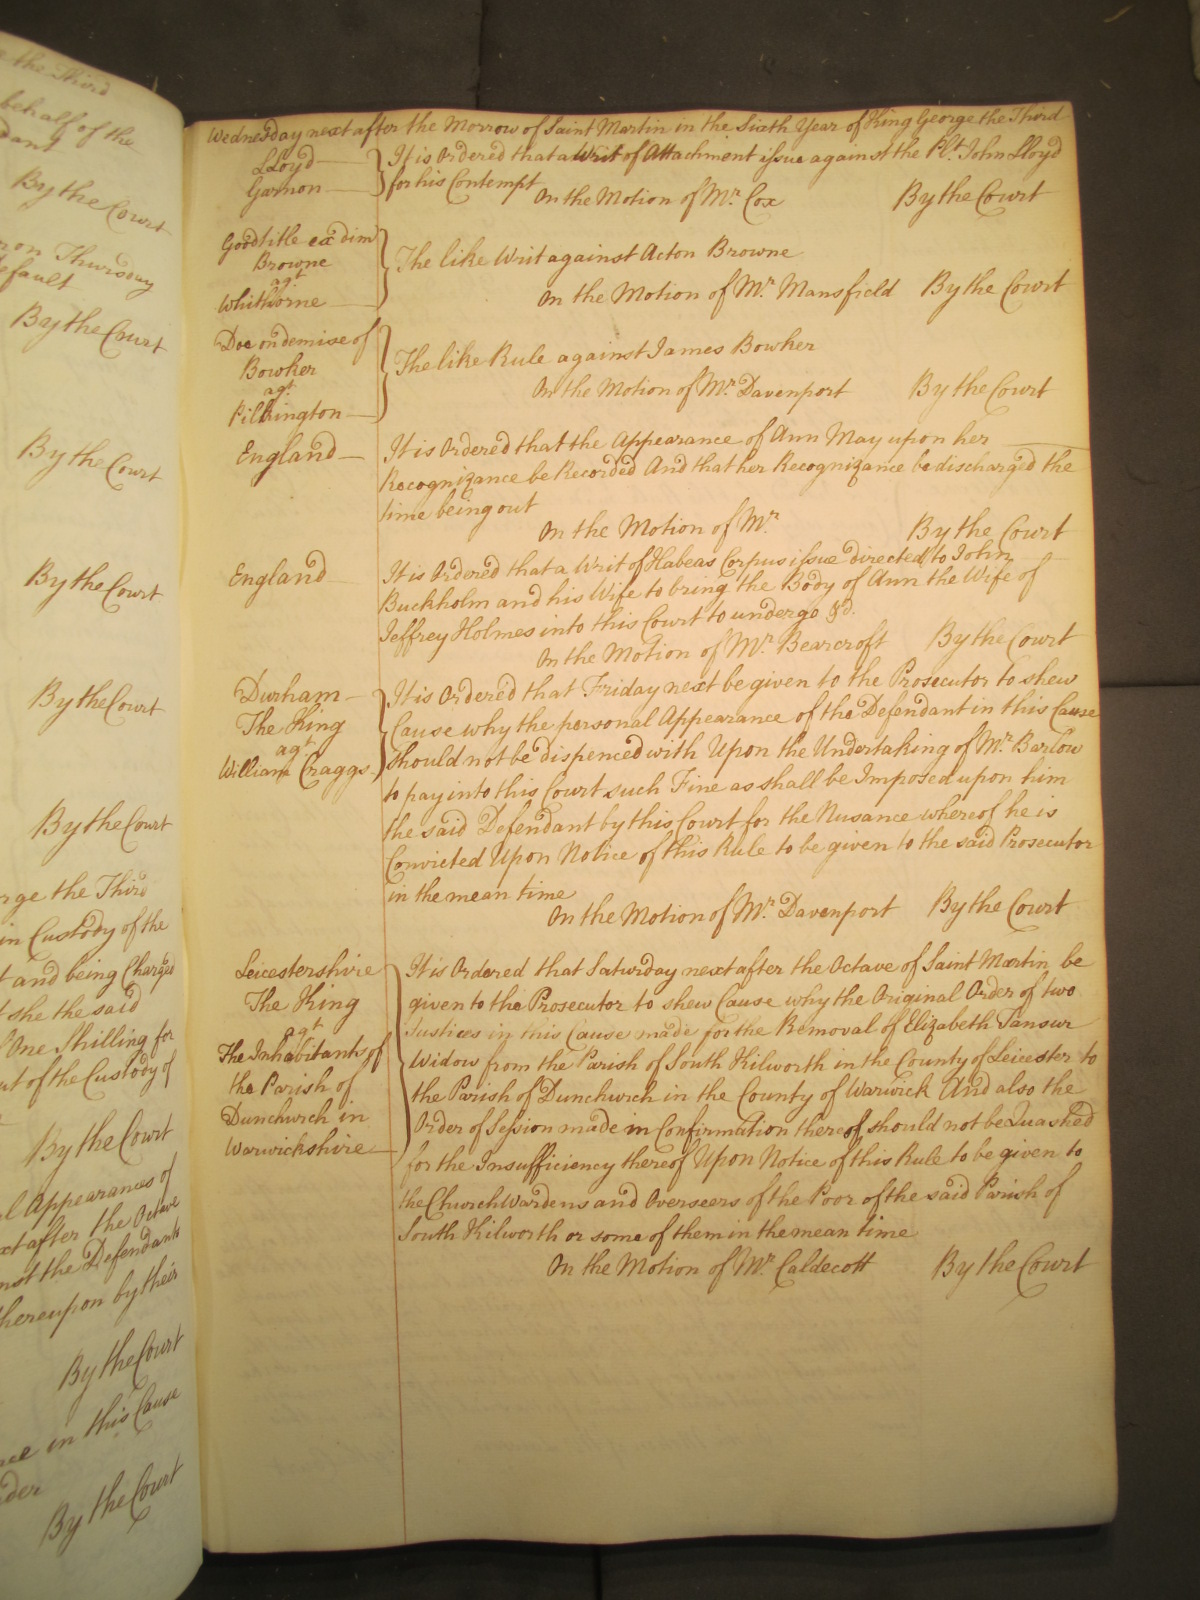 e the Third
behalf of the
dant
By the Court
on Thursday
efault
By the Court
By the Court
By the Court
By the Court
By the Court
rge the Third
in Custody of the
t and being Charged
t she the said
One Shilling for
ut of the Custody of
By the Court
l Appearances of
xt after the Octave
nst the Defendants
hereupon by their
By the Court
in this Cause
By the Court
Wednesday next after the Morrow of Saint Martin in the Sixth Year of King George the Third
Lloyd
Garmon
It is Ordered that a Writ of Attachment issue against the Plt. John Lloyd
for his Contempt
On the Motion of Mr. Cox By the Court
Goodtitle ex dim
Browne
agt
Whithorne
The like Writ against Acton Browne
On the Motion of Mr. Mansfield By the Court
Doe on demise of
Bowker
agt
Pilkington
The like Rule against James Bowker
On the Motion of Mr. Davenport By the Court
England
It is Ordered that the Appearance of Ann May upon her
Recognizance be Recorded And that her Recognizance be discharged the
time being out
On the Motion of Mr. By the Court
England
It is Ordered that a Writ of Habeas Corpus issue directed to John
Buckholm and his Wife to bring the Body of Ann the Wife of
Jeffrey Holmes into this Court to undergo &c.
On the Motion of Mr. Bearcroft By the Court
Durham
The King
agt
William Craggs
It is Ordered that Friday next be given to the Prosecutor to shew
Cause why the personal Appearance of the Defendant in this Cause
should not be dispenced with Upon the Undertaking of Mr. Barlow
to pay into this Court such Fine as shall be Imposed upon him
the said Defendant by this Court for the Nusance whereof he is
Convicted Upon Notice of this Rule to be given to the said Prosecutor
in the mean time
On the Motion of Mr. Davenport By the Court
Leicestershire
The King
agt
The Inhabitants of
the Parish of
Dunchurch in
Warwickshire
It is Ordered that Saturday next after the Octave of Saint Martin be
given to the Prosecutor to shew Cause why the Original Order of two
Justices in this Cause made for the Removal of Elizabeth Tansur
Widow from the Parish of South Kilworth in the County of Leicester to
the Parish of Dunchurch in the County of Warwick And also the
Order of Session made in Confirmation thereof should not be Quashed
for the Insufficiency thereof Upon Notice of this Rule to be given to
the Church Wardens and Overseers of the Poor of the said Parish of
South Kilworth or some of them in the mean time
On the Motion of Mr. Caldecott By the Court